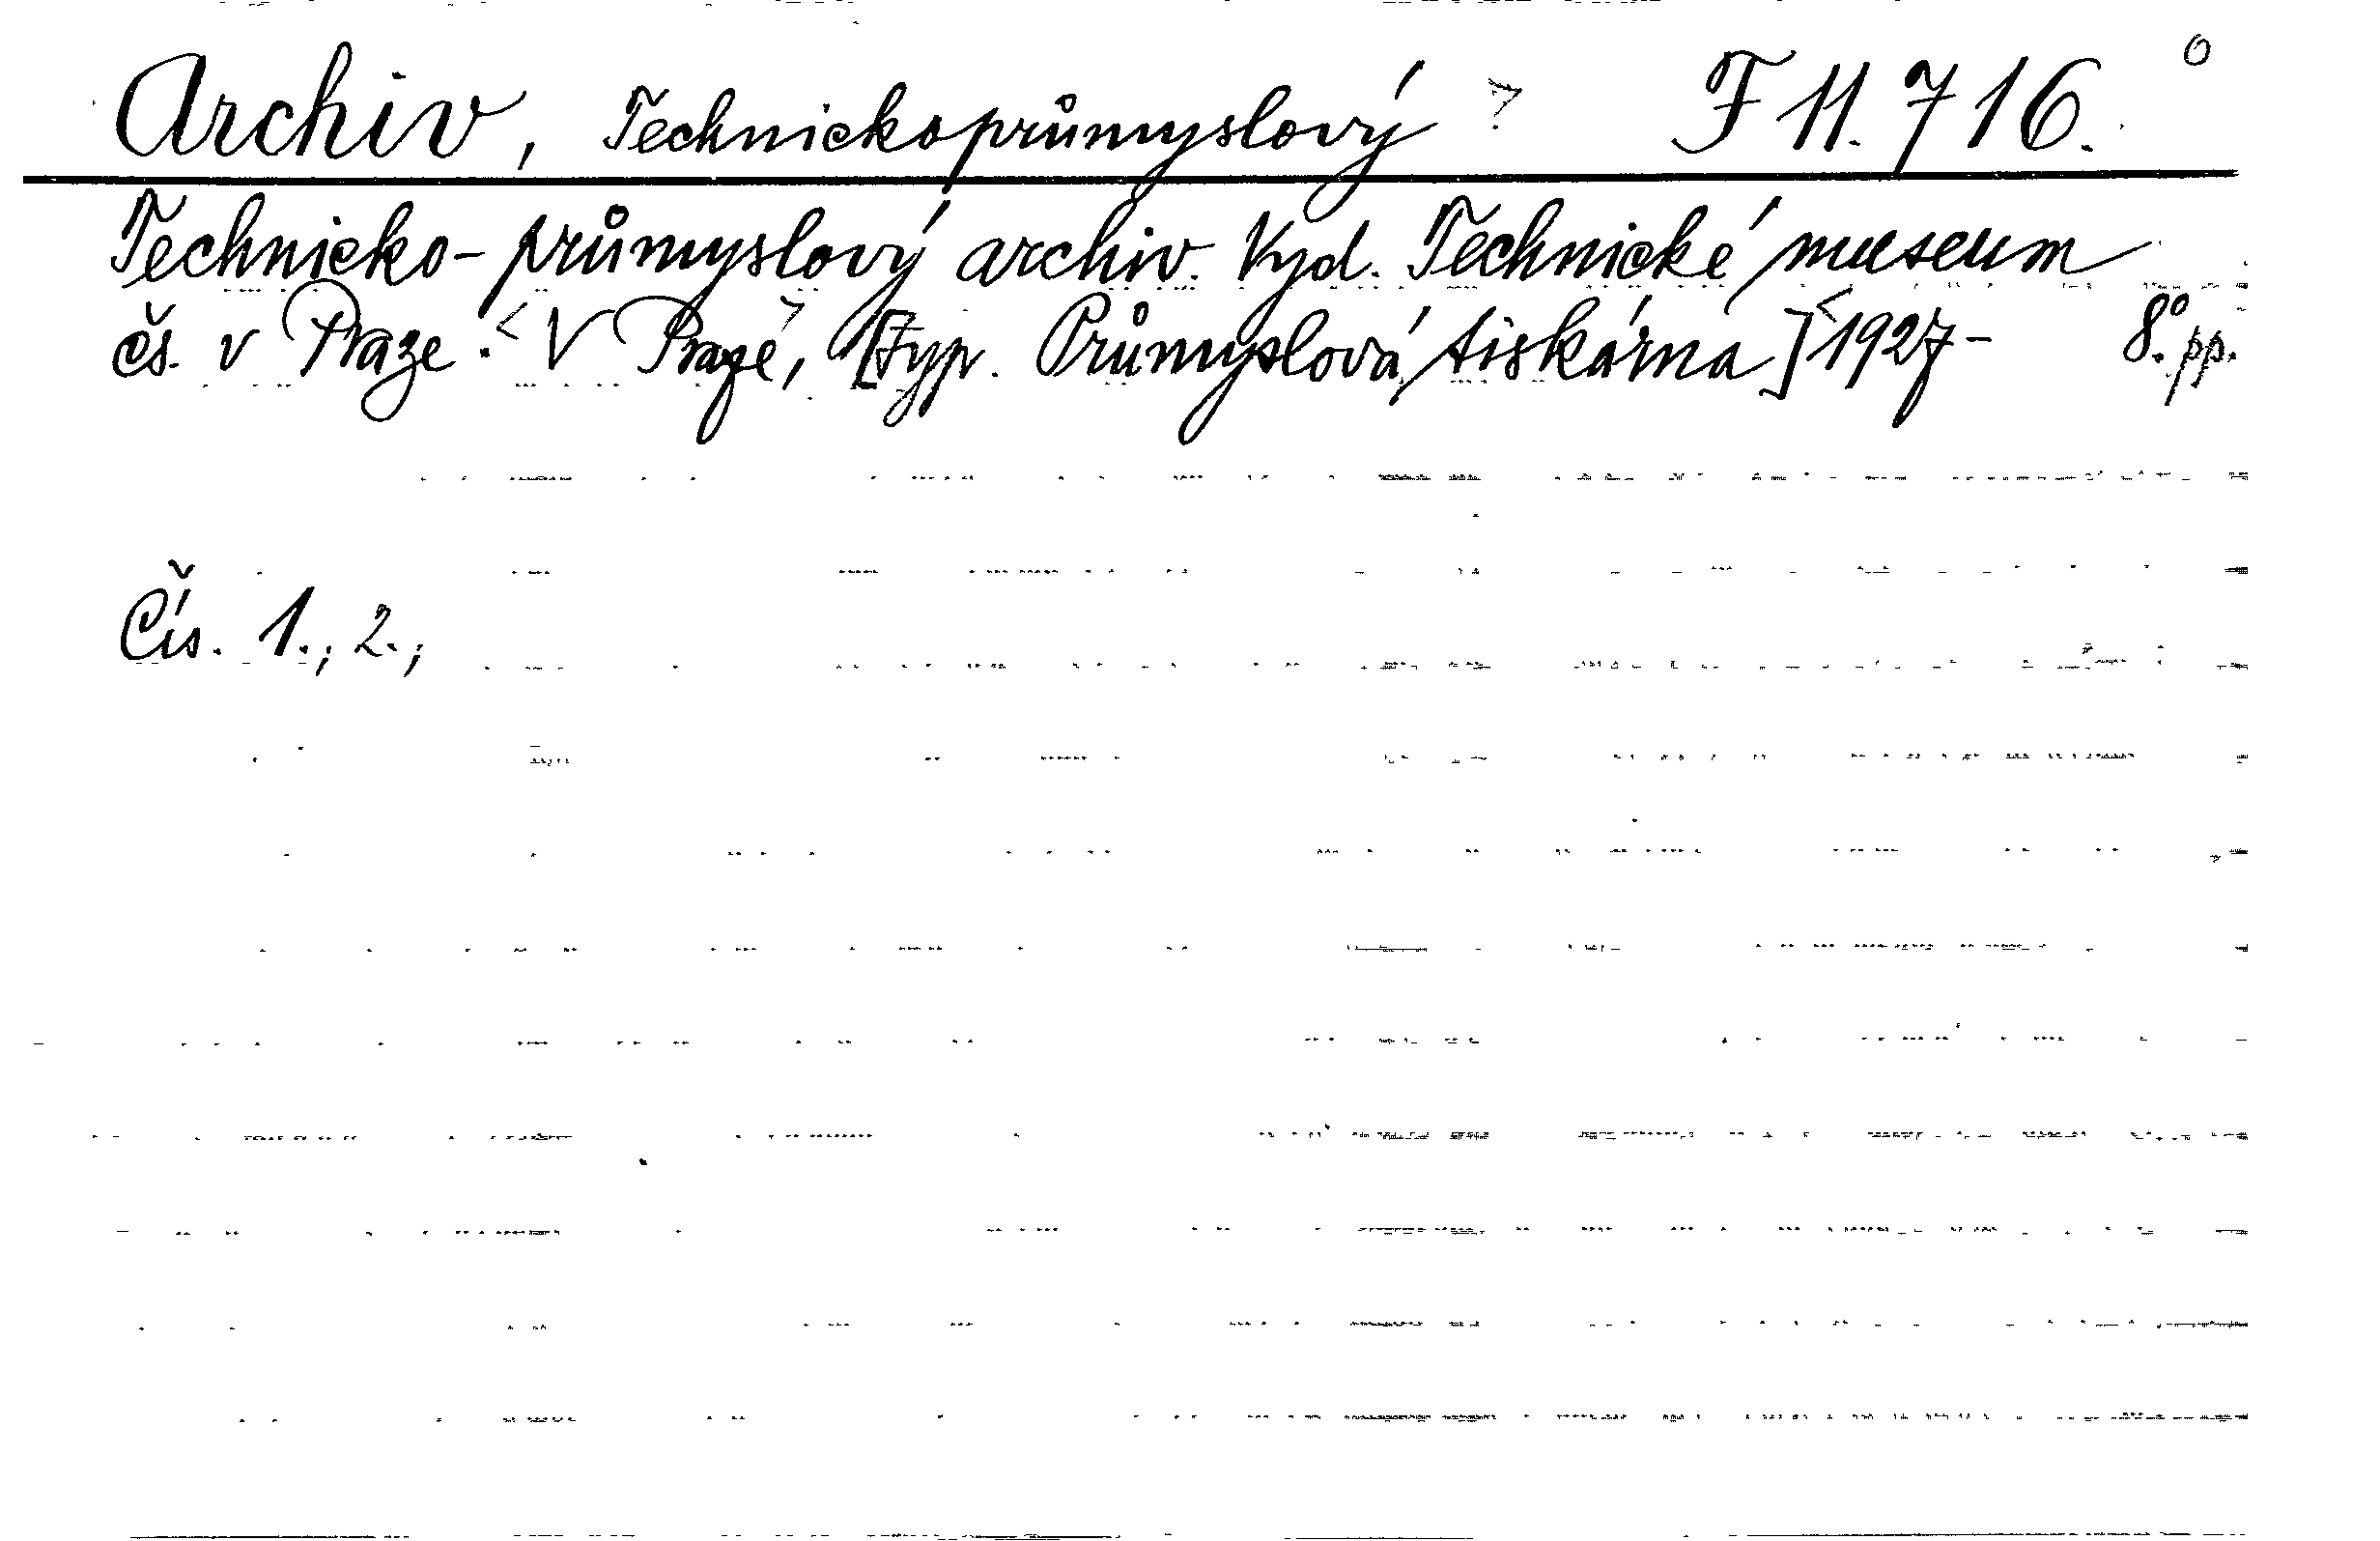 Archiv, Technickoprůmyslový > F 11.716. o
Technicko-průmyslový archiv. Vyd. Technické museum
čs. v Praze. < V Praze >, [Typ. Průmyslová tiskárna] < 1927- 8° pp.
Čís. 1.; 2.;